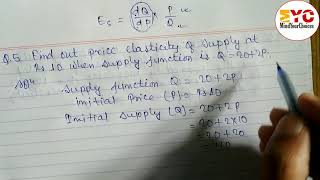 Es = dQ/dP × P/Q
MYC
MindYourChoices
Q.5 Find out price elasticity of supply at
Rs 10 when supply function is Q = 20+2P.
Solⁿ
Supply function Q = 20+2P
initial Price (P) = Rs 10
Initial supply (Q) = 20+2P
= 20+2×10
= 20+20
= 40